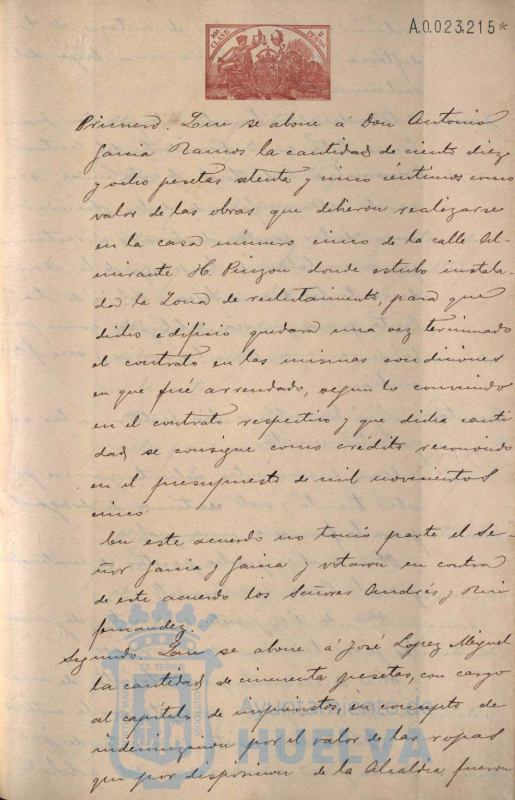 10ª CLASE
2 PESETAS
A.0.023.215*
Primero. Que se abone á Don Antonio
Garcia Ramos la cantidad de ciento diez
y ocho pesetas setenta y cinco céntimos como
valor de las obras que debieron realizarse
en la casa número cinco de la calle Al-
mirante H. Pinzon donde estubo instala-
da la Zona de reclutamiento, para que
dicho edificio quedara una vez terminado
el contrato en las mismas condiciones
en que fué arrendado, segun lo convenido
en el contrato respectivo y que dicha canti
dad se consigne como crédito reconocido
en el presupuesto de mil novecientos
cinco.
En este acuerdo no tomó parte el Se-
ñor Garcia y Garcia y votaron en contra
de este acuerdo los Señores Andrés y
Fernandez.
Segundo. Que se abone á José Lopez Miguel
la cantidad de cincuenta pesetas, con cargo
al capítulo de imprevistos, en concepto de
indemnizacion por el valor de las ropas
que por disposicion de la Alcaldia fueron
Ayuntamiento de
HUELVA